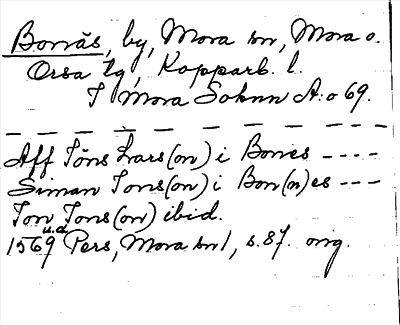 Bonäs, by, Mora sn, Mora o.
Orsa tg, Kopparb. l.
I Mora Soknn A:o 69.
— — — — — — — — — — — —
Aff Jöns Lars(on) i Bones ----
Siman Jons(on) i Bon(n)es ---
Jon Jons(on) ibid.
u.d.
1569 Pers, Mora sn 1, s.87. orig.